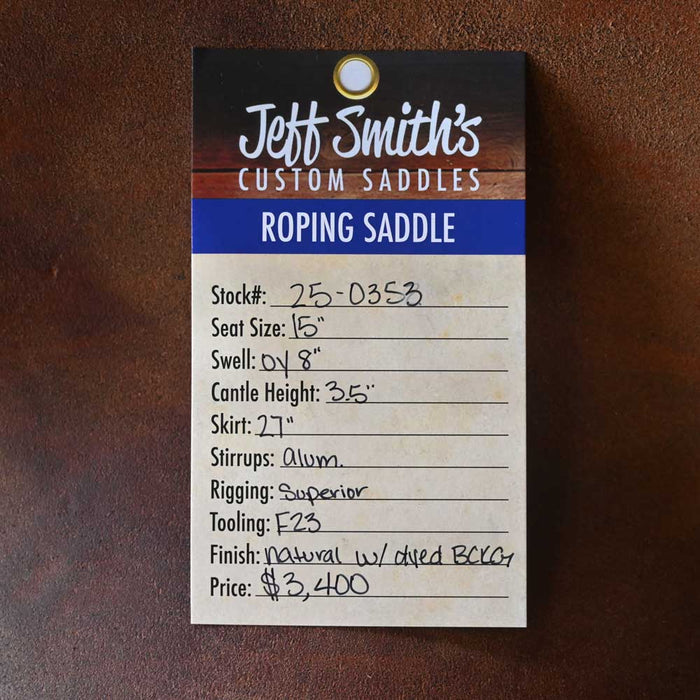 Jeff Smith's
CUSTOM SADDLES
ROPING SADDLE
Stock#: 25-0353
Seat Size: 15"
Swell: OY 8"
Cantle Height: 3.5"
Skirt: 27"
Stirrups: alum.
Rigging: Superior
Tooling: F23
Finish: natural w/ dyed BCKG
Price: $3,400